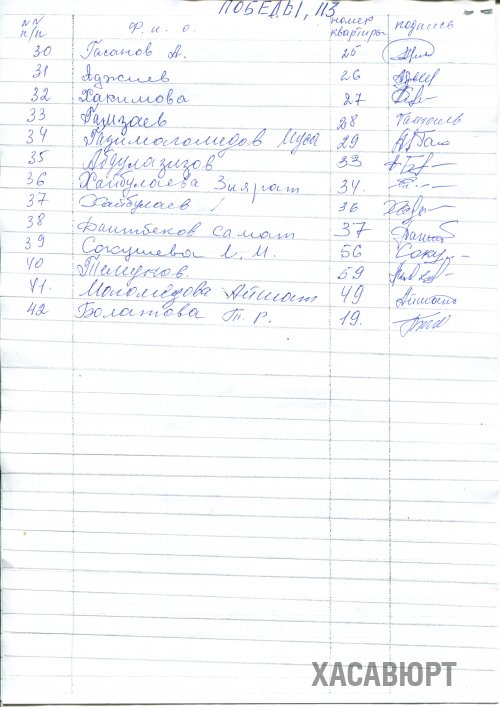 ПОБЕДЫ, 113
NN п/п Ф. и. о. номер квартиры подпись
30 Гасанов А. 25
31 Яджиев 26
32 Хакимова 27
33 Газизаев 28
34 Газимагомедов Муса 29
35 Абдулазизов 33
36 Хайбулаева Зиярат 34.
37 Хайбулаев 36
38 Баитбеков Самат 37
39 Сокушева Л. М. 56
40 59
41. Магомедова Айшат 49
42 Болатова Т. Р. 19.
ХАСАВЮРТ